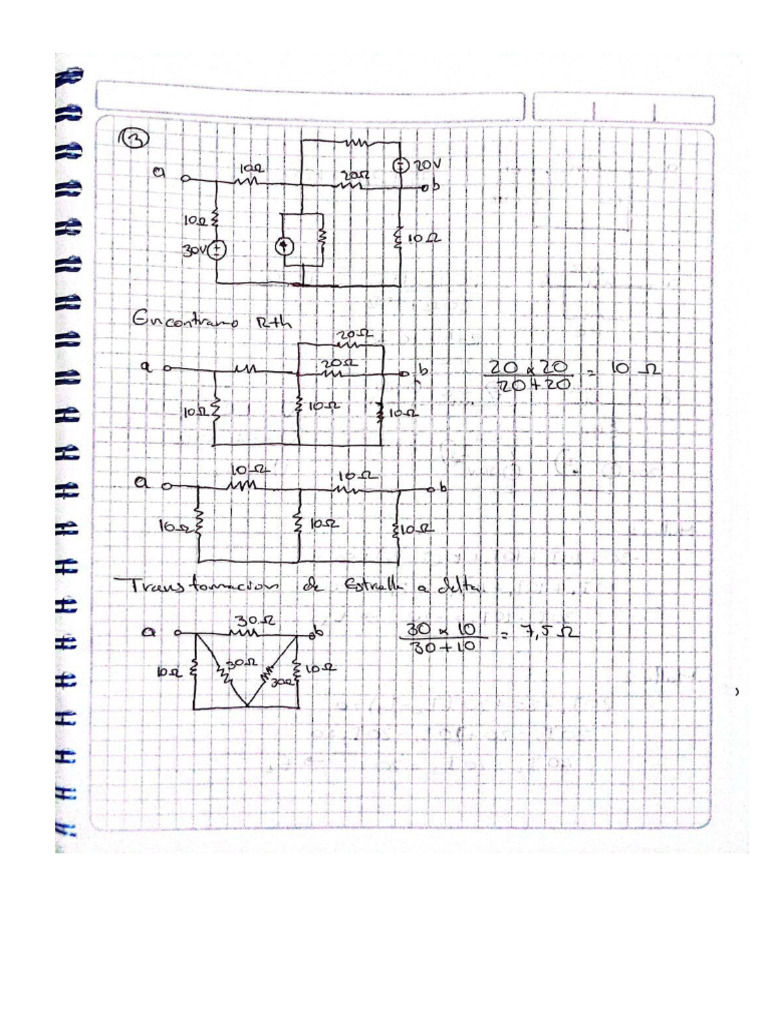 3
20V
10Ω
a
20Ω
b
10Ω
30V
10Ω
Encontramo Rth
20Ω
a
20Ω
b
20 x 20 / 20 + 20 = 10 Ω
10Ω
10Ω
10Ω
a
10Ω
10Ω
b
10Ω
10Ω
10Ω
Transformacion de estrella a delta.
30Ω
a
b
30 x 10 / 30 + 10 = 7,5 Ω
10Ω
30Ω
30Ω
10Ω